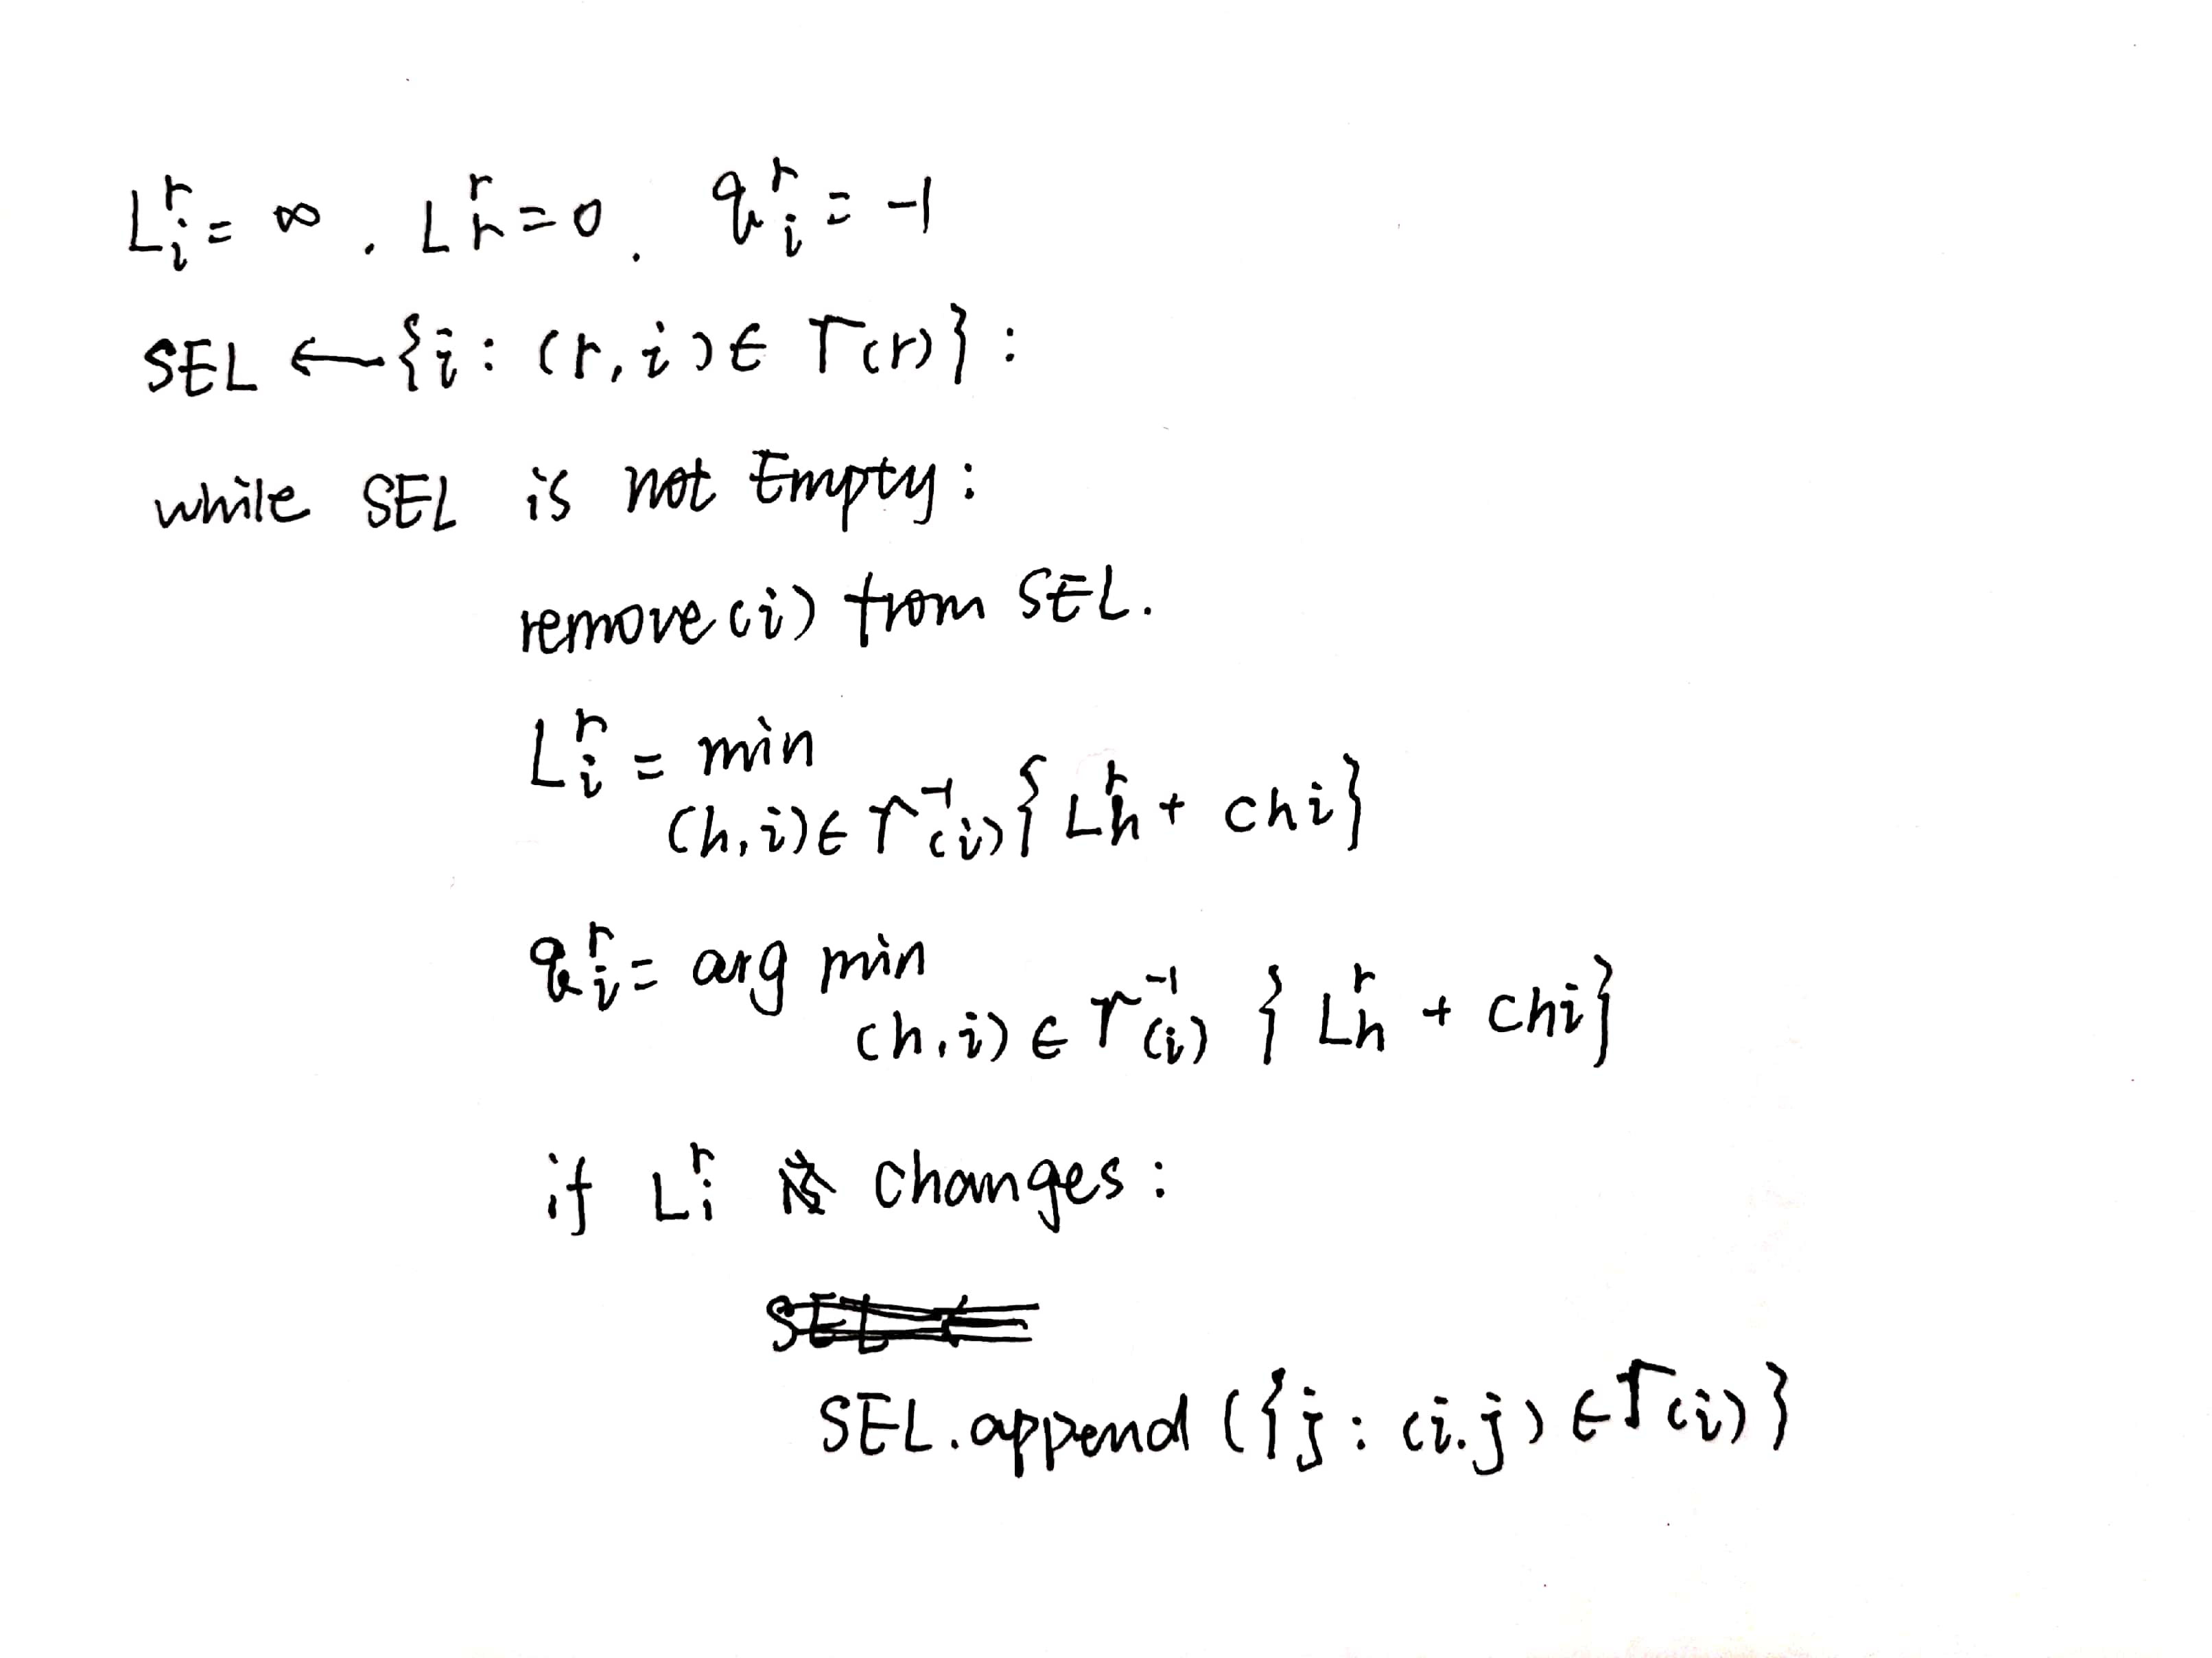 L_i^r = ∞ , L_r^r = 0 , q_i^r = -1
SEL ← {i : (r, i) ∈ Γ(r)} :
while SEL is not Empty :
remove (i) from SEL.
L_i^r = min_{(h,i) ∈ Γ^{-1}(i)} { L_h^r + chi }
q_i^r = arg min_{(h,i) ∈ Γ^{-1}(i)} { L_h^r + chi }
if L_i^r changes :
SEL.append ({j : (i.j) ∈ Γ(i)}